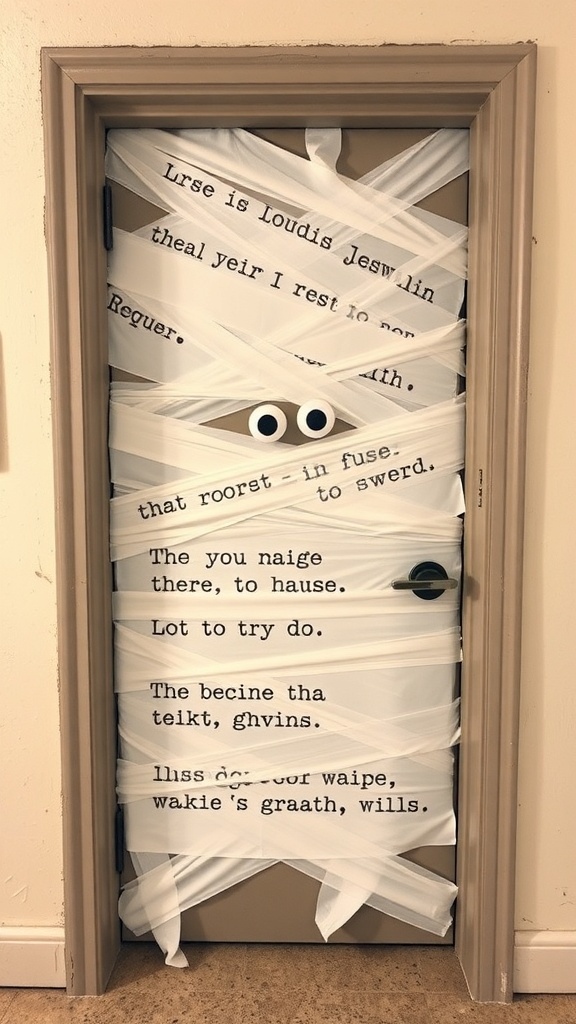 Lrse is Loudis Jeswlin
theal yeir I rest Io
Reguer.
that roorst - in fuse.
to swerd.
The you naige
there, to hause.
Lot to try do.
The becine tha
teikt, ghvins.
waipe,
wakie's graath, wills.